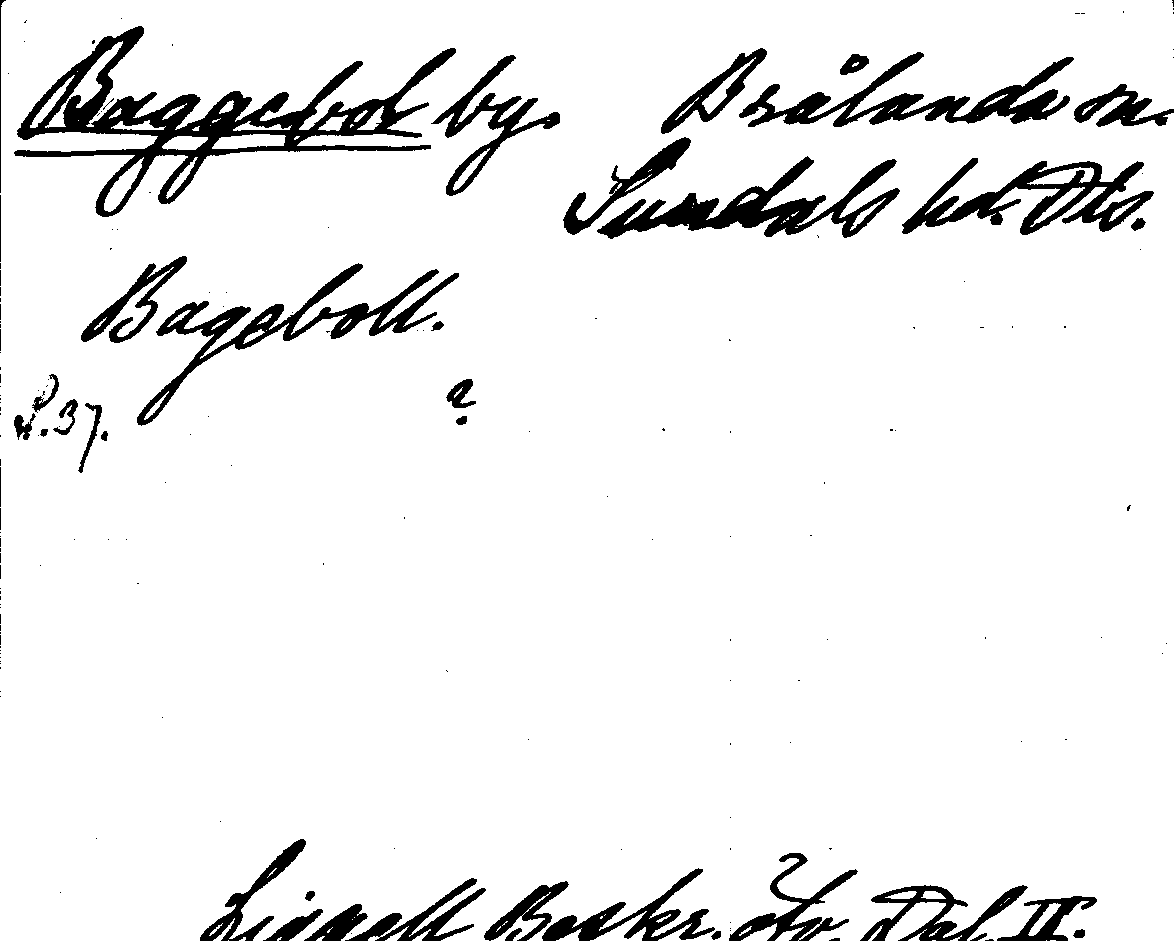 Baggebol by. Brålanda sn.
Sundals hd. Dls.
Bageboll.
S. 37. ?
Lignell Beskr. öfv. Dal II.